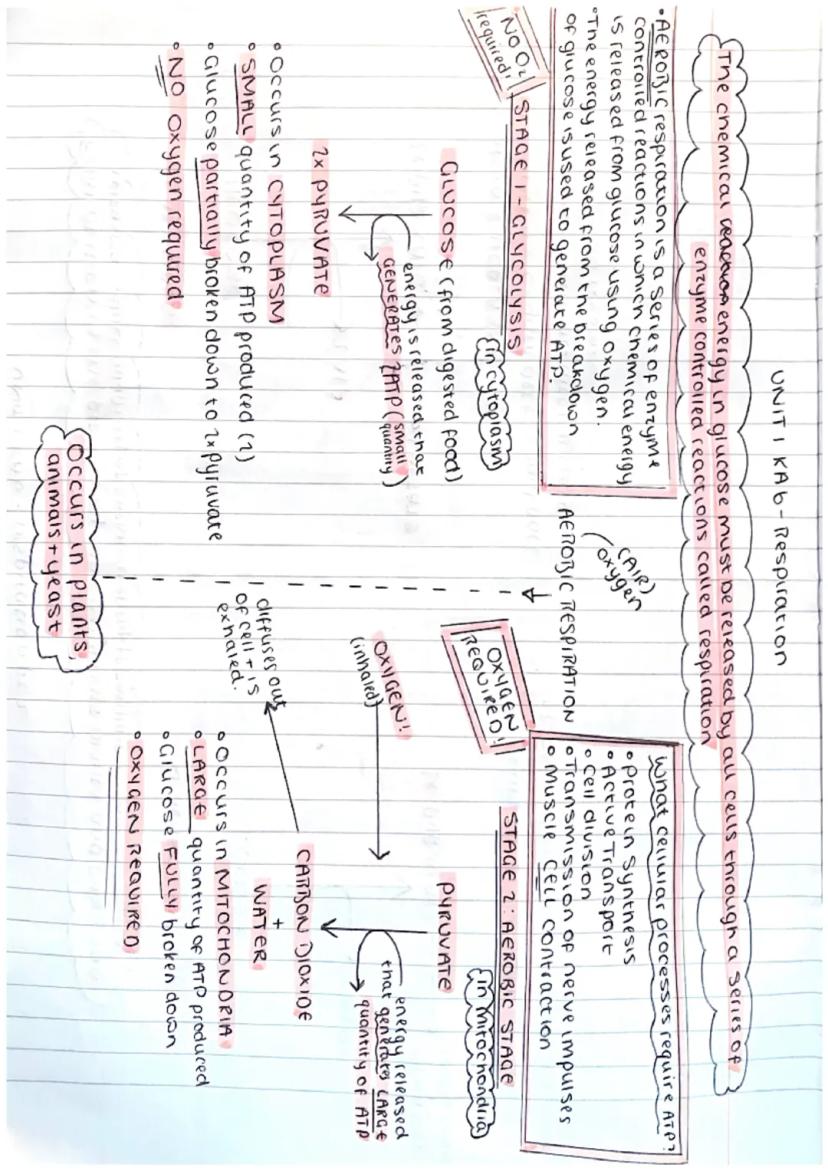 UNIT 1 KA6 - Respiration
The chemical reaction energy in glucose must be released by all cells through a series of
enzyme controlled reactions called respiration
• AEROBIC respiration is a series of enzyme
controlled reactions in which chemical energy
is released from glucose using oxygen.
• The energy released from the breakdown
of glucose is used to generate ATP.
(AIR)
oxygen
AEROBIC RESPIRATION
What cellular processes require ATP?
• Protein Synthesis
• Active Transport
• Cell division
• Transmission of nerve impulses
• Muscle CELL contraction
NO O2
required!
STAGE 1 - GLYCOLYSIS
(in cytoplasm)
GLUCOSE (from digested food)
energy is released that
GENERATES 2ATP (small
quantity)
2x PYRUVATE
• Occurs in CYTOPLASM
• SMALL quantity of ATP produced (2)
• Glucose partially broken down to 2x pyruvate
• NO oxygen required
OXYGEN
REQUIRED!
STAGE 2: AEROBIC STAGE
(in mitochondria)
PYRUVATE
energy released
that generates LARGE
quantity of ATP
OXYGEN!!
(inhaled)
CARBON DIOXIDE
+
WATER
diffuses out
of cell + is
exhaled.
• Occurs in MITOCHONDRIA
• LARGE quantity of ATP produced
• Glucose FULLY broken down
• OXYGEN REQUIRED
Occurs in plants,
animals + yeast